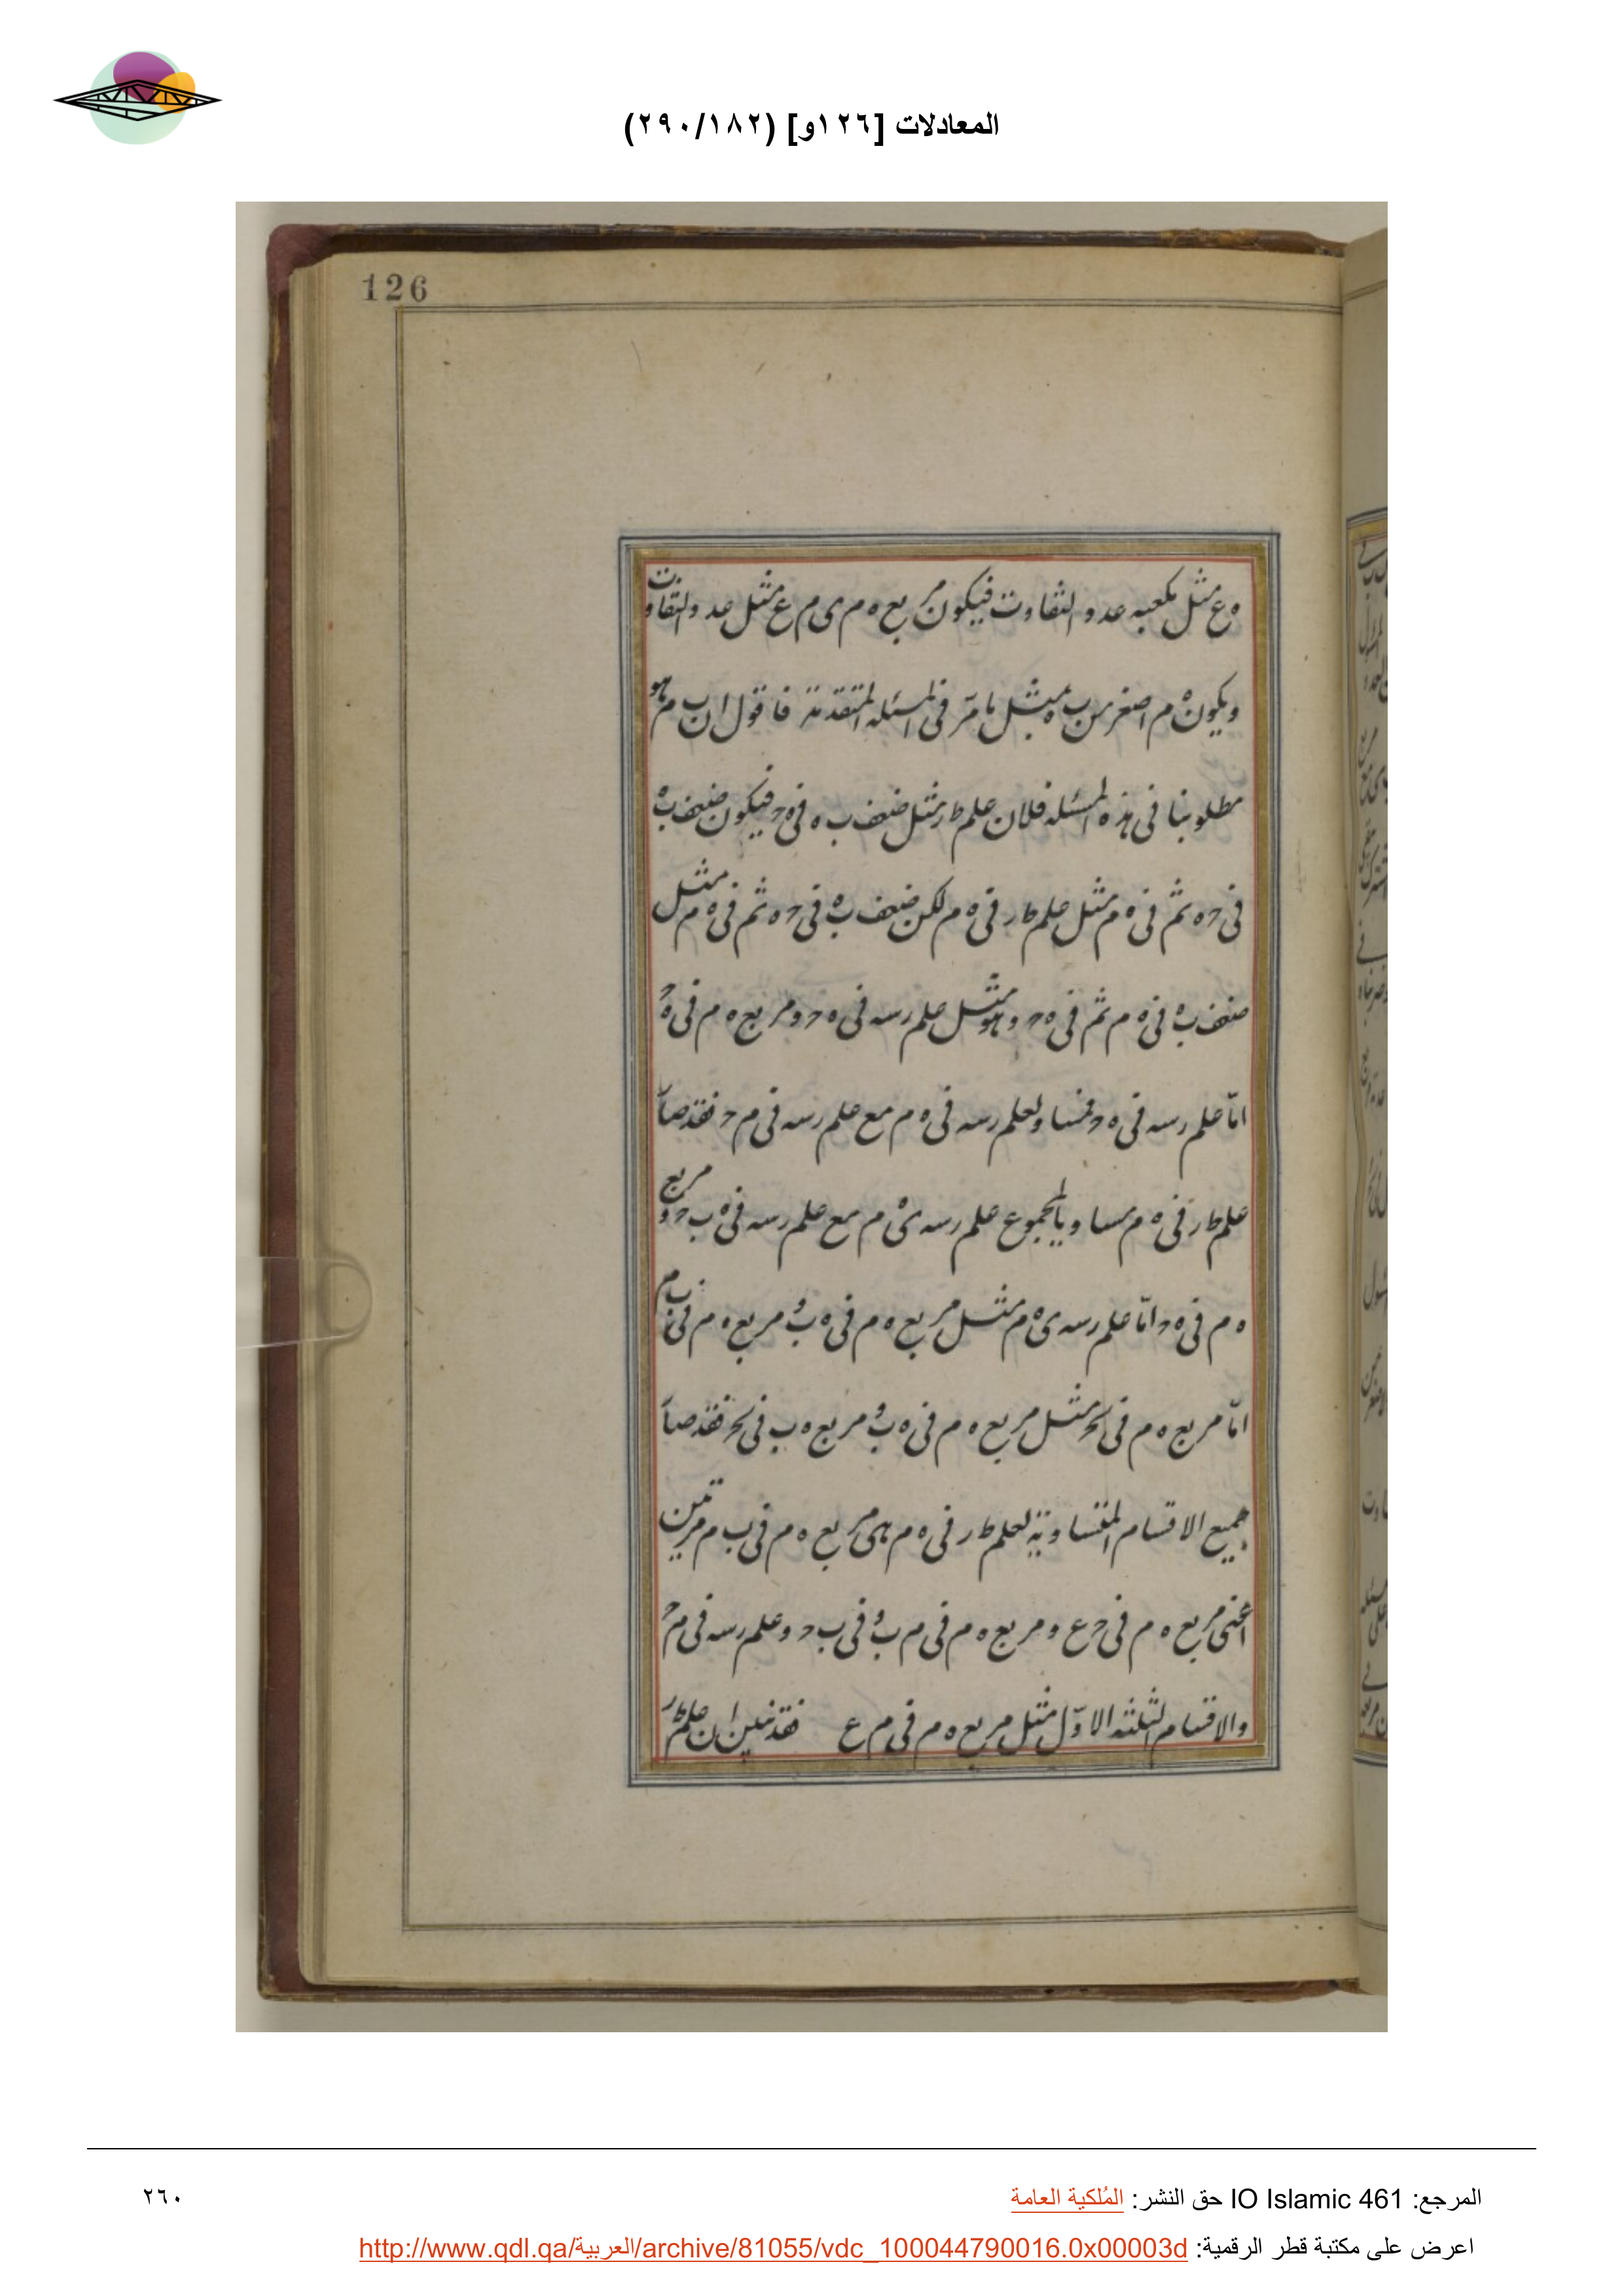 المعادلات [١٢٦و] (٢٩٠/١٨٢)
126
ه ع مثل مكعبه عدد التفاوت فيكون مربع ه م ى م ع مثل عدد التفاوت
ويكون ه م اصغر من ب ه بمثل ما مر فى المسئله المتقدمة فاقول ان ب م هو
مطلوبنا فى هذه المسئله فلان علم ط ر مثل ضعف ب ه فى ه ح فيكون ضعف ب ه
فى ح ه ثم فى ه م مثل علم ط ر فى ه م لكن ضعف ب ه فى ح ه ثم فى ه م مثل
ضعف ب ه فى ه م ثم فى ه ح وهو مثل علم رسه فى ه ح ومربع ه م فى ه ح
امّا علم رسه فى ه ح فمساو لعلم رسه فى ه م مع علم رسه فى م ح فقد صار
علم ط ر فى ه م مساويا لمجموع علم رسه ى ه م مع علم رسه فى ه ب ح ومربع
ه م فى ه ح وامّا علم رسه ى ه م مثل مربع ه م فى ه ب و مربع ه م فى ب م
امّا مربع ه م فى ح مثل مربع ه م فى ه ب و مربع ه ب فى ح فقد صار
جميع الاقسام المتساوية لعلم ط ر فى ه م هى مربع ه م فى ب م مرتين
اعنى مربع ه م فى ح ع ومربع ه م فى م ب و فى ب ح وعلم رسه فى م ح
والاقسام الثلثه الاوّل مثل مربع ه م فى م ع فقد تبين ان علم ط ر
المرجع: IO Islamic 461 حق النشر: المُلكية العامة
٢٦٠
اعرض على مكتبة قطر الرقمية: http://www.qdl.qa/العربية/archive/81055/vdc_100044790016.0x00003d